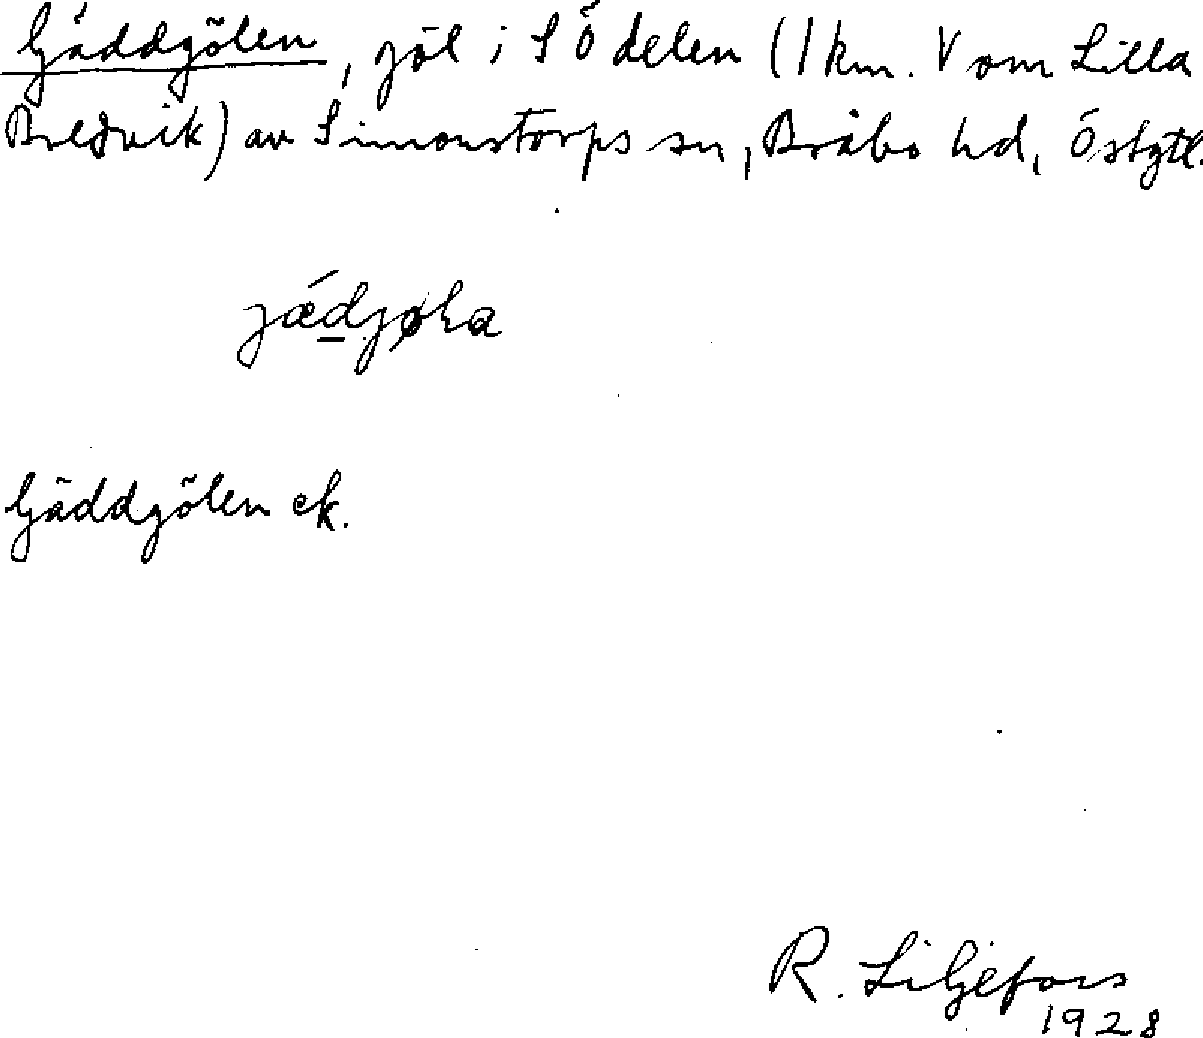 Gäddgölen, göl i S Ö delen (1 km. V om Lilla
Bredvik) av Simonstorps sn, Bråbo hd, Östgtl.
Gäddgölen ek.
R. Liljefors
1928